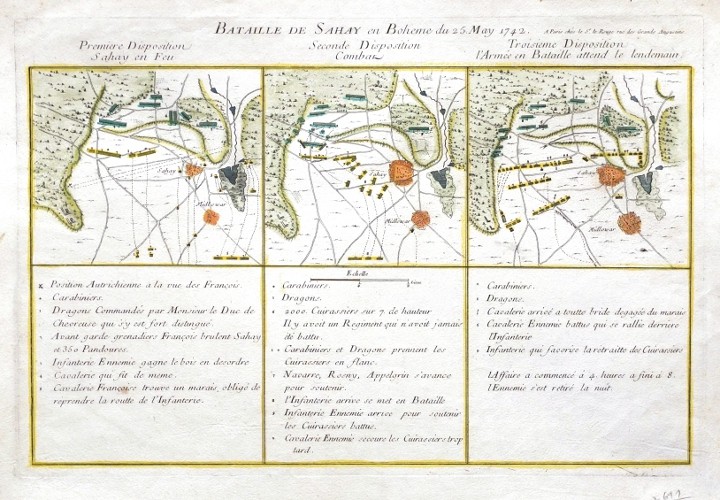 BATAILLE DE SAHAY en Boheme du 25. May 1742.
A Paris chez le Sr. le Rouge rue des Grands Augustins
Premiere Disposition
Sahay en Feu
Seconde Disposition
Combat
Troisieme Disposition
l'Armée en Bataille attend le lendemain
Sahay
Millowar
Sahay
Millowar
Sahay
Millowar
Position Autrichienne à la vue des François.
Carabiniers.
Dragons Commandés par Monsieur le Duc de
Chevreuse qui s'y est fort distingué.
Avant garde grenadiers François brulent Sahay
et 350 Pandoures.
Infanterie Ennemie gagne le bois en desordre
Cavalerie qui fit de meme.
Cavalerie Françoise trouve un marais, obligé de
reprendre la routte de l'Infanterie.
Echelle
Carabiniers.
Dragons.
2000. Cuirassiers sur 7. de hauteur
Il y avoit un Regiment qui n'avoit jamais
été battu.
Carabiniers et Dragons prennent les
Cuirassiers en flanc.
Navarre, Rosny, Appelgrin s'avance
pour soutenir.
l'Infanterie arrive se met en Bataille
Infanterie Ennemie arrive pour soutenir
les Cuirassiers battus.
Cavalerie Ennemie secoure les Cuirassiers trop
tard.
Carabiniers.
Dragons.
Cavalerie arrivée a toutte bride degagée du marais
Cavalerie Ennemie battus qui se rallie derriere
l'Infanterie
Infanterie qui favorise la retraitte des Cuirassiers
l'Affaire a commencé à 4. heures a fini à 8.
l'Ennemie s'est retiré la nuit.